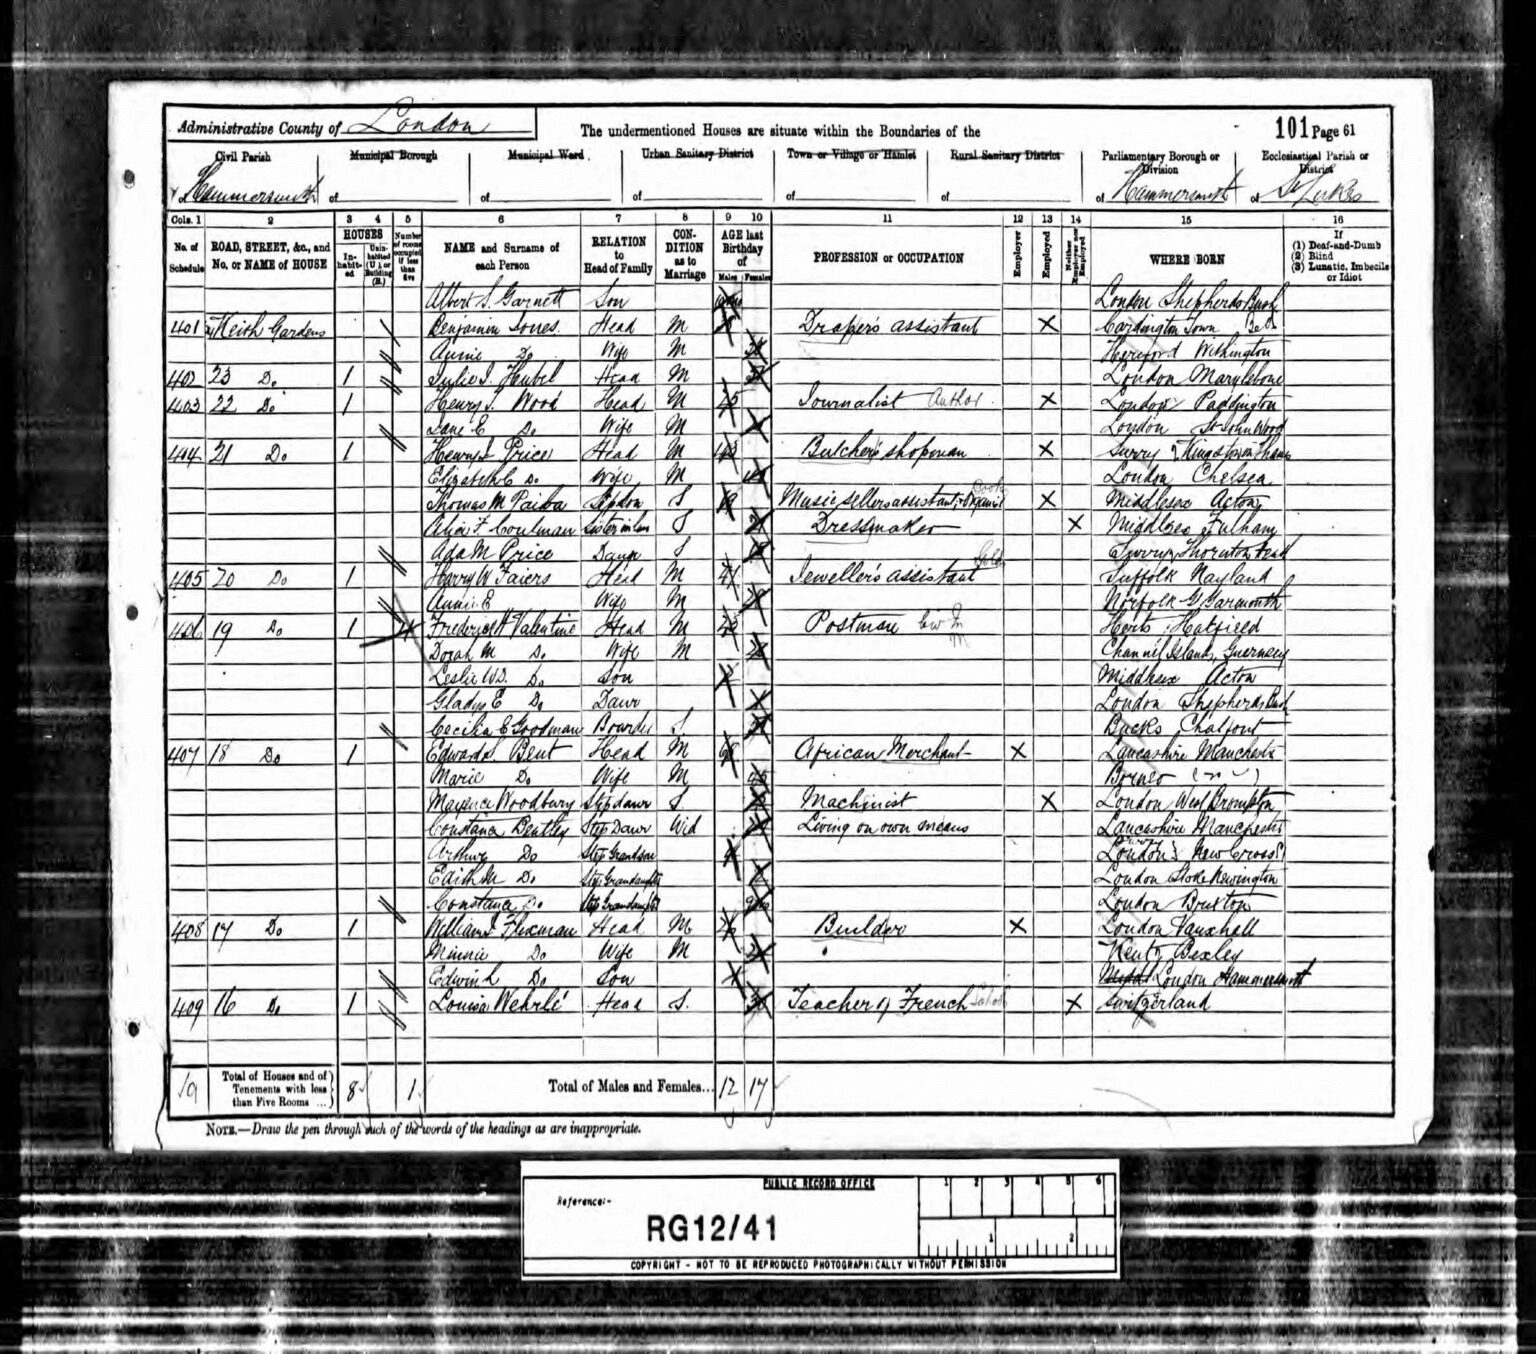 Administrative County of London
The undermentioned Houses are situate within the Boundaries of the
101 Page 61
Civil Parish Municipal Borough Municipal Ward Urban Sanitary District Town or Village or Hamlet Rural Sanitary District Parliamentary Borough or Division Ecclesiastical Parish or District
of Hammersmith of of of of of of Hammersmith of St Lukes
Cols. 1 2 3 4 5 6 7 8 9 10 11 12 13 14 15 16
No. of Schedule ROAD, STREET, &c., and No. or NAME of HOUSE HOUSES Inhabited Uninhabited (U.), or Building (B.) Number of rooms occupied if less than five NAME and Surname of each Person RELATION to Head of Family CONDITION as to Marriage AGE last Birthday of Males Females PROFESSION or OCCUPATION Employer Employed Neither Employer nor Employed WHERE BORN If (1) Deaf-and-Dumb (2) Blind (3) Lunatic, Imbecile or Idiot
Albert S. Garnett Son London Shepherds Bush
401 Keith Gardens Benjamin Jones Head M Draper's assistant X Cardington Town Beds
Annie Do Wife M Hereford Withington
402 23 Do 1 Julie J. Hubel Head M London Marylebone
403 22 Do 1 Henry J. Wood Head M Journalist Author X London Paddington
Jane E Do Wife M London St John Wood
404 21 Do 1 Henry Price Head M Butcher's shopman X Surrey Kingston on Thames
Elizabeth C Do Wife M London Chelsea
Thomas M Paiba Stepson S 19 Music sellers assistant & Organist X Middlesex Acton
Coulman Sister in law S Dressmaker X Middlesex Fulham
Ada M Price Daur S Surrey Thornton Heath
405 20 Do 1 Harry W Faiers Head M Jeweller's assistant Suffolk Nayland
Annie E Wife M Norfolk Gt Yarmouth
406 19 Do 1 4 Frederick H Valentine Head M Postman Herts Hatfield
Dorah M Do Wife M Channel Islands, Guernsey
Leslie W.D. Do Son Middlesex Acton
Gladys E Do Daur London Shepherds Bush
Cecilia E Goodman Boarder S Bucks Chalfont
407 18 Do 1 Edward Bent Head M African Merchant X Lancashire Manchester
Marie Do Wife M Borneo
Mayence Woodbury Stepdaur S Machinist X London West Brompton
Constance Bentley Step Daur Wid Living on own means Lancashire Manchester
Arthur Do Step Grandson London New Cross
Edith M Do Step Grandaughter London Stoke Newington
Constance Do Step Grandaughter London Brixton
408 17 Do 1 William J Flexman Head M Builder X London Vauxhall
Minnie Do Wife M Kent Bexley
Edwin L Do Son London Hammersmith
409 16 Do 1 Louisa Wehrlé Head S. Teacher of French School X Switzerland
19 Total of Houses and of Tenements with less than Five Rooms ... 8 1 Total of Males and Females... 12 17
NOTE.—Draw the pen through such of the words of the headings as are inappropriate.
PUBLIC RECORD OFFICE
1 2 3 4 5 6
Reference:-
RG12/41
1 2
COPYRIGHT - NOT TO BE REPRODUCED PHOTOGRAPHICALLY WITHOUT PERMISSION